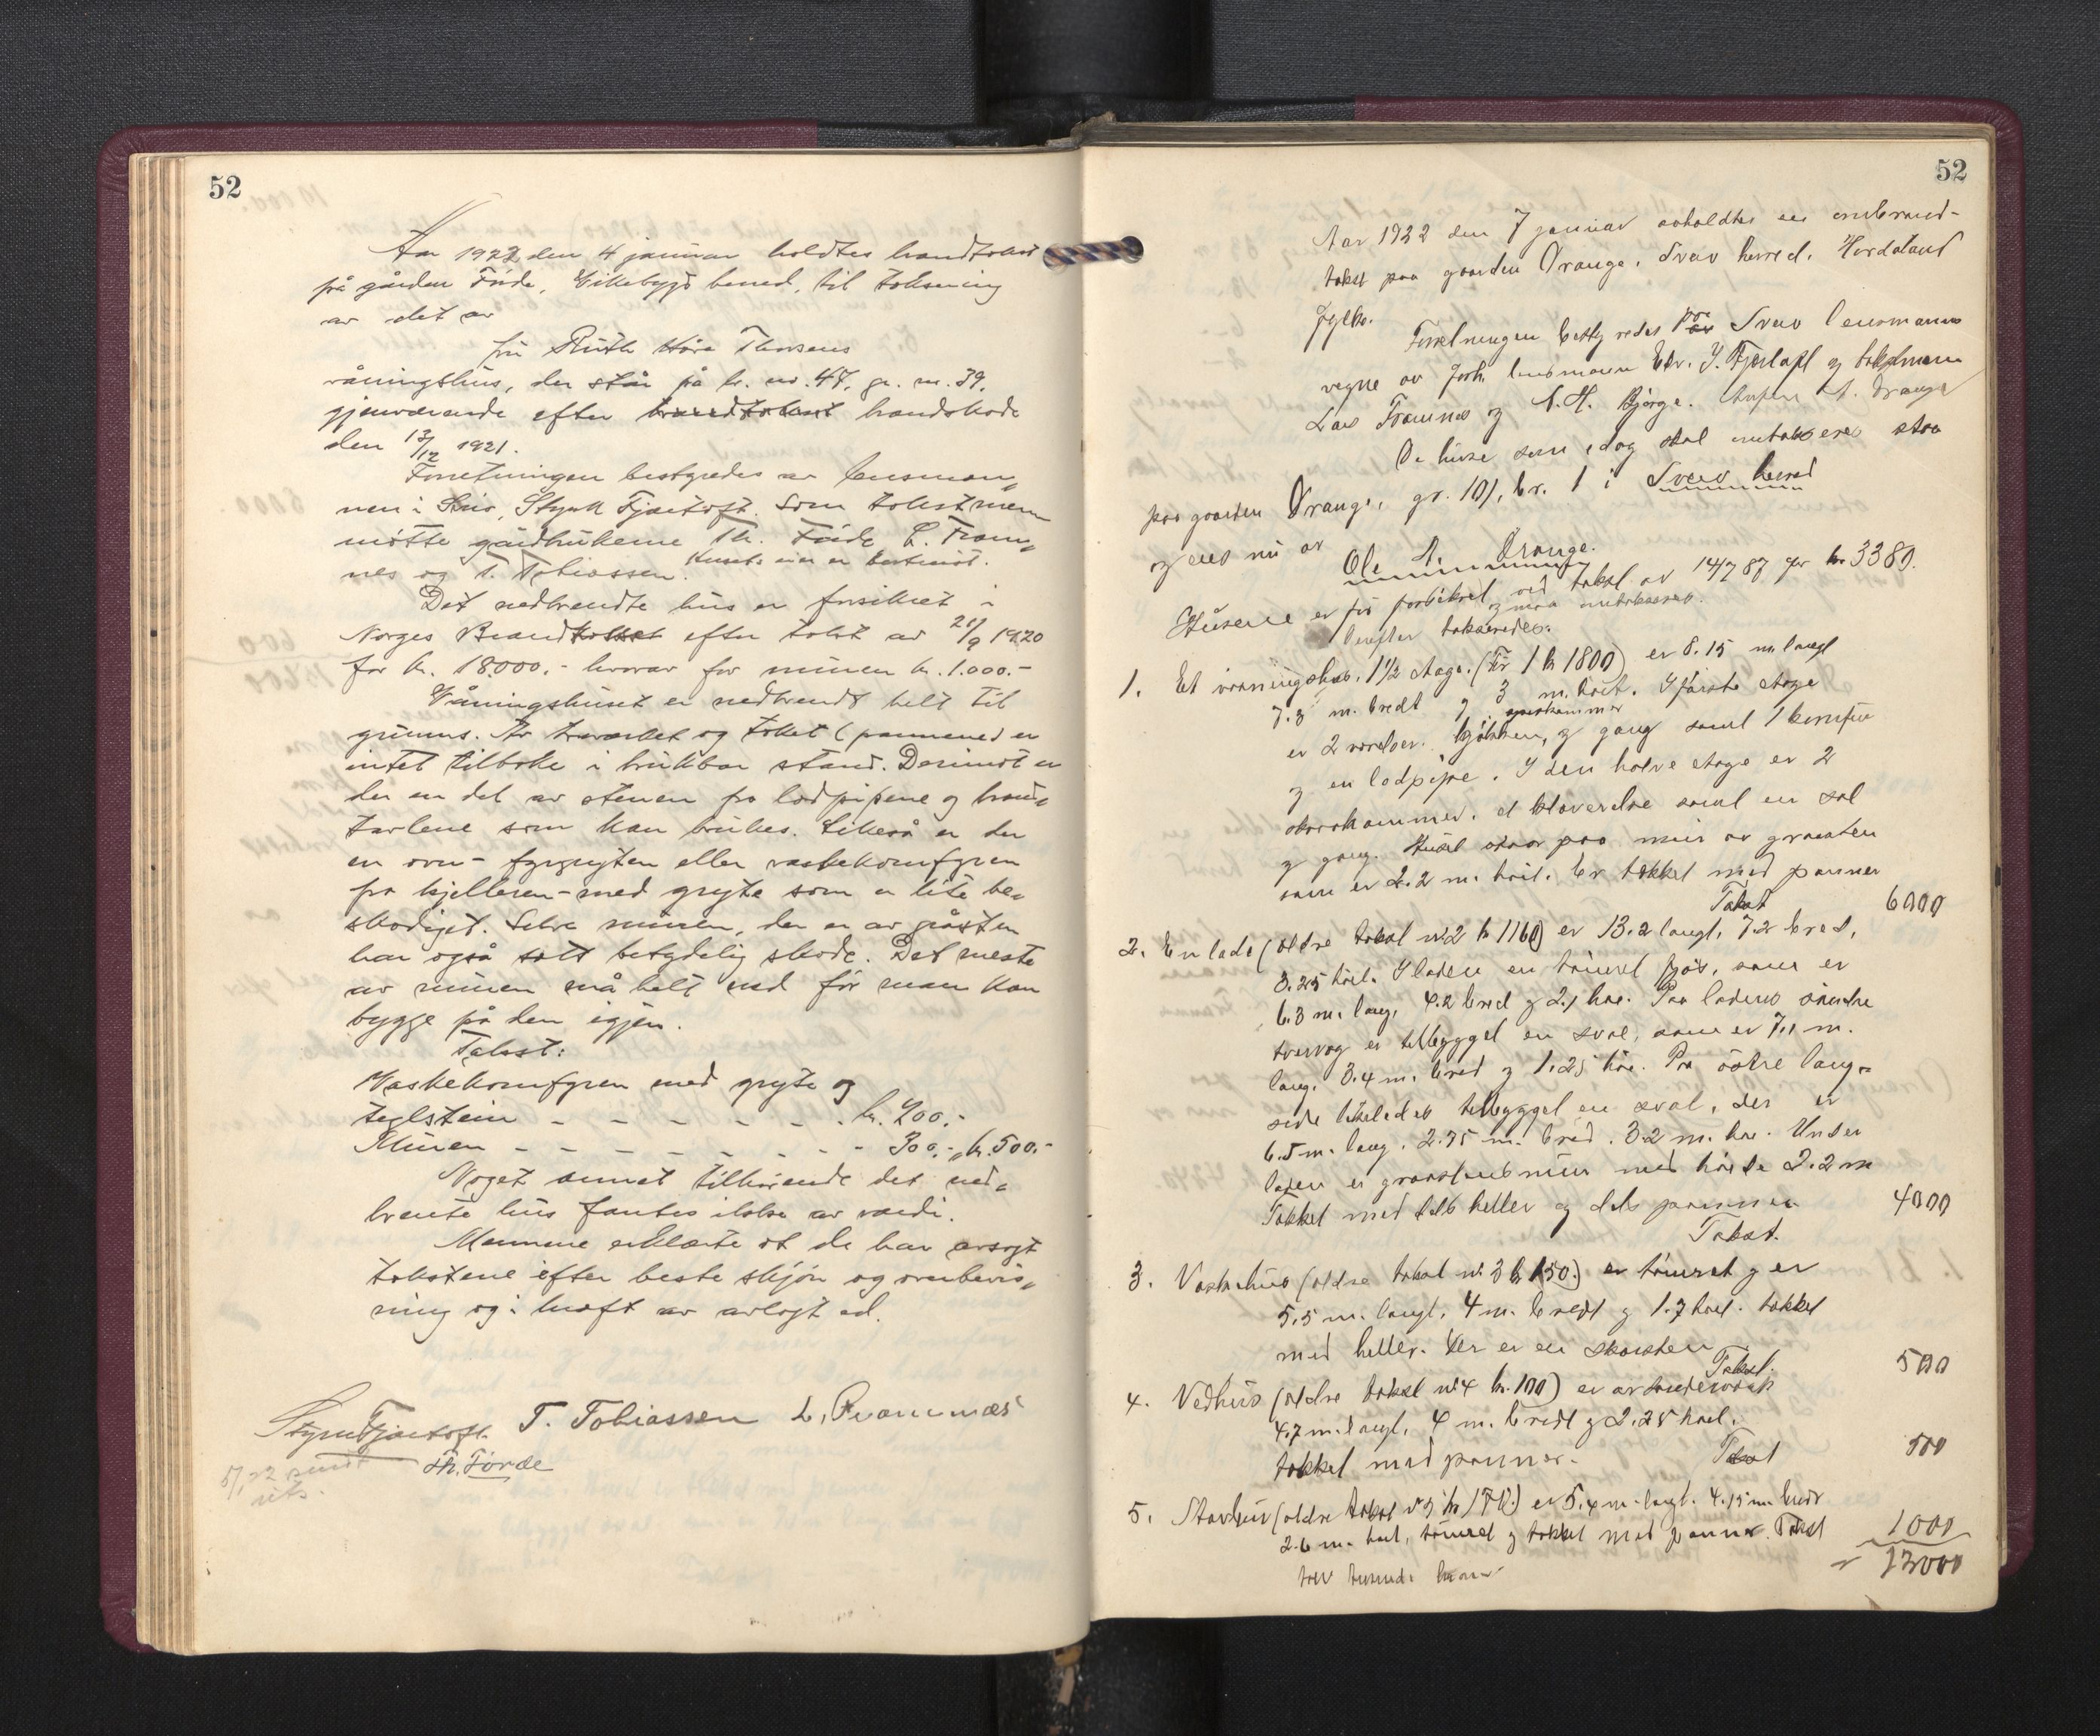 52
Aar 1922 den 4 januar holdtes brandtakst
på gården Førde, Vikebygd herred, til taksering
av det av
fru Ruth Håre Thorsens
våningshus, der står på br. nr. 47, gr. nr. 39.
gjenværende efter brandtakst brandskade
den 17/12 1921.
Forretningen bestyredes av lensman-
nen i Sveio, Styrk Fjærtoft. Som takstmenn
møtte gårdbrukerne Th. Førde, L. Fram-
nes og T. Tobiassen. Husets eier er bortreist.
Det nedbrendte hus er forsikret i
Norges Brandkasse efter takst av 21/9 1920
for kr. 18000.- hvorav for muren kr. 1.000.-
Våningshuset er nedbrendt helt til
grunns. Av træværket og taket (pannene) er
intet tilbake i brukbar stand. Derimot er
der en del av stenen fra lodpipene og brand-
tavlene som kan brukes. Likeså er der
en ovn - fyrgryten eller vaskekomfyren
fra kjelleren - med gryte som er lite be-
skadiget. Selve muren, der er av gråsten
har også tatt betydelig skade. Det meste
av muren må helt ned før man kan
bygge på den igjen.
Takst:
Vaskekomfyren med gryte og
teglstein - - - - - - - kr. 200.-
Muren - - - - - - - - - 300.- kr. 500.-
Noget annet tilhørende det ned-
brente hus fantes ikke av værdi.
Mennene erklærte at de har avsagt
takstene efter beste skjøn og overbevis-
ning og i kraft av avlagt ed.
Styrk Fjærtoft. T. Tobiassen L. Framnæs
Th. Førde
5/1 22 sendt
uts.
52
Aar 1922 den 7 januar avholdtes en ombrand-
takst paa gaarden Drange, Sveio herred, Hordaland
fylke.
Forretningen bestyredes for Sveio lensmanns
vegne av forh. lensmann Edv. J. Fjærtoft og takstmenn
Lars Framnes og A. H. Bjørge. A. Drange
De huse som idag skal omtakseres staar
paa gaarden Drange, gr. 101, br. 1 i Sveio herred
og eies nu av Ole A. Drange.
Husene er før forsikret ved takst av 14/7 87 for kr 3380.
og maa omtakseres.
herefter takseredes:
1. Et vaaningshus, 1 1/2 etage. (Før 1 kr 1800) er 8.15 m langt
7.3 m. bredt og 3 m. høit. I første etage
er 2 værelser. kjøkken, spiskammer og gang samt 1 komfur
og en lodpipe. I den halve etage er 2
soverkammer, et kloværelse samt en sal
og gang. Huset staar paa mur av graasten
som er 2.2 m. høit. Er tækket med panner
Takst 6000
2. En lade (ældre takst nr 2 kr 1160) er 13.2 langt, 7.2 bred,
3.25 høit. I laden en tømret fjøs, som er
6.3 m. lang, 4.2 bred og 2.1 høi. Paa ladens søndre
tvervæg er tilbygget en sval, som er 7.1 m.
lang, 3.4 m. bred og 1.25 høi. Paa østre lang-
side likeledes tilbygget en sval, der er
6.5 m. lang, 2.75 m. bred, 3.2 m. høi. Under
laden er graastensmur med høide 2.2 m
Tækket med dels heller og dels panner 4000
Takst.
3. Vaskehus (ældre takst nr. 3 kr 150.) er tømret og er
5.5 m. langt, 4 m. bredt og 1.7 høit. tækket
med heller. Der er en skorsten
Takst. 500
4. Vedhus (ældre takst nr 4 kr. 100) er av bindeværk
4.7 m. langt, 4 m. bredt og 2.25 høit.
tækket med panner. Takst 500
5. Stavhus (ældre takst nr 5 kr 170.) er 5.4 m. langt. 4.15 m. bredt
2.6 m. høit, tømret og tækket med panner. Takst 1000
tolv tusende kroner 12000